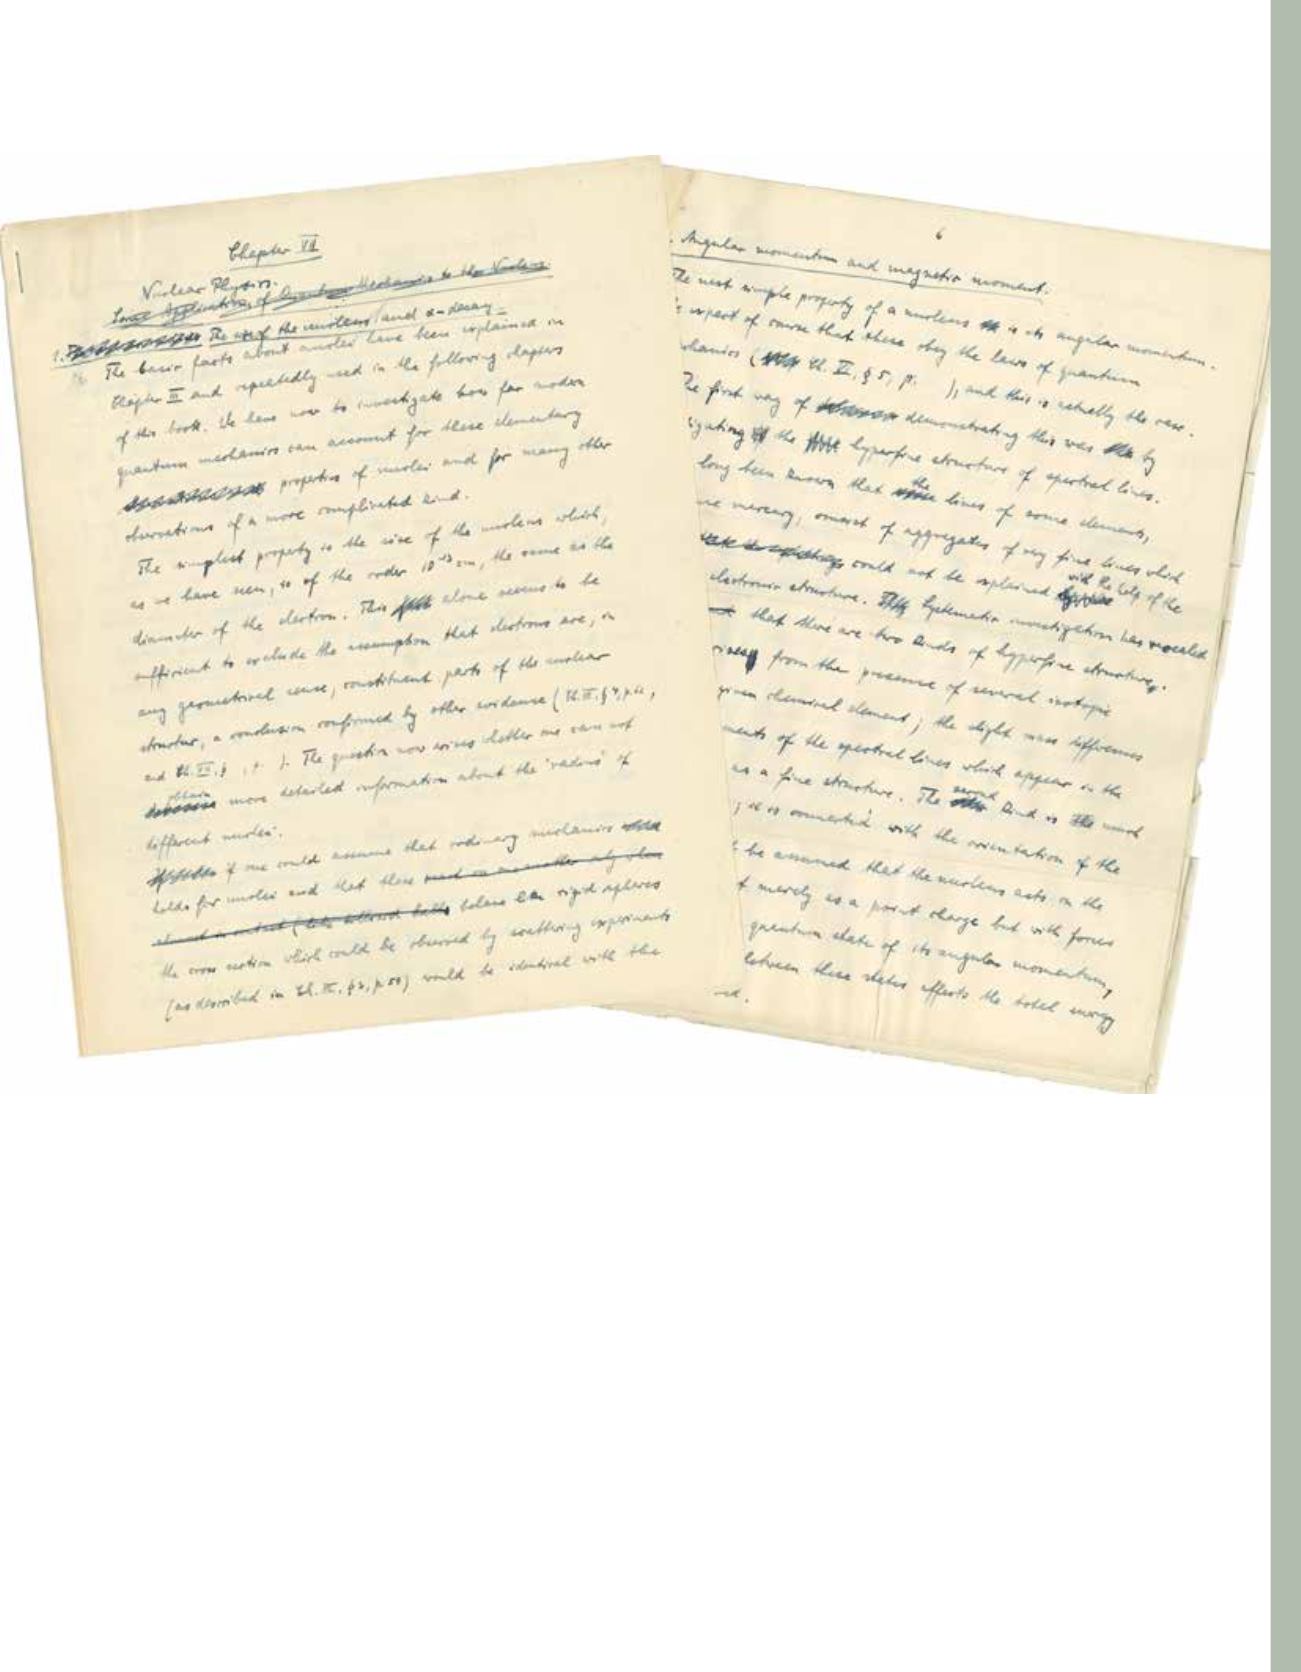 Chapter VII
Nuclear Physics.
Some Applications of Quantum Mechanics to the Nucleus.
1. The size of the nucleus and α-decay
The basic facts about nuclei have been explained in
Chapter III and repeatedly used in the following chapters
of this book. We have now to investigate how far modern
quantum mechanics can account for these elementary
properties of nuclei and for many other
observations of a more complicated kind.
The simplest property is the size of the nucleus which,
as we have seen, is of the order 10⁻¹³ cm, the same as the
diameter of the electron. This alone seems to be
sufficient to exclude the assumption that electrons are, in
any geometrical sense, constituent parts of the nuclear
structur, a conclusion confirmed by other evidence (Ch. III, § 3, p. 62,
and Ch. VII, § , p. ). The question now arises whether one can not
obtain more detailed information about the 'radius' of
different nuclei.
if one could assume that ordinary mechanics
holds for nuclei and that these
behave like rigid spheres
the cross section which could be observed by scattering experiments
(as described in Ch. III, § 2, p. 50) would be identical with the
6
Angular momentum and magnetic moment.
The next simple property of a nucleus is its angular momentum.
expect of course that these obey the laws of quantum
mechanics ( Ch. IV, § 5, p. ), and this is actually the case.
The first way of demonstrating this was by
the hyperfine structure of spectral lines.
long been known that the lines of some elements,
mercury, consist of aggregates of very fine lines which
could not be explained with the help of the
electronic structure. Systematic investigation has revealed
that there are two kinds of hyperfine structure.
from the presence of several isotopes
given chemical element; the slight mass differences
of the spectral lines which appear in the
as a fine structure. The second kind is the
; it is connected with the orientation of the
be assumed that the nucleus acts on the
merely as a point charge but with forces
quantum state of its angular momentum,
between these states affects the total energy